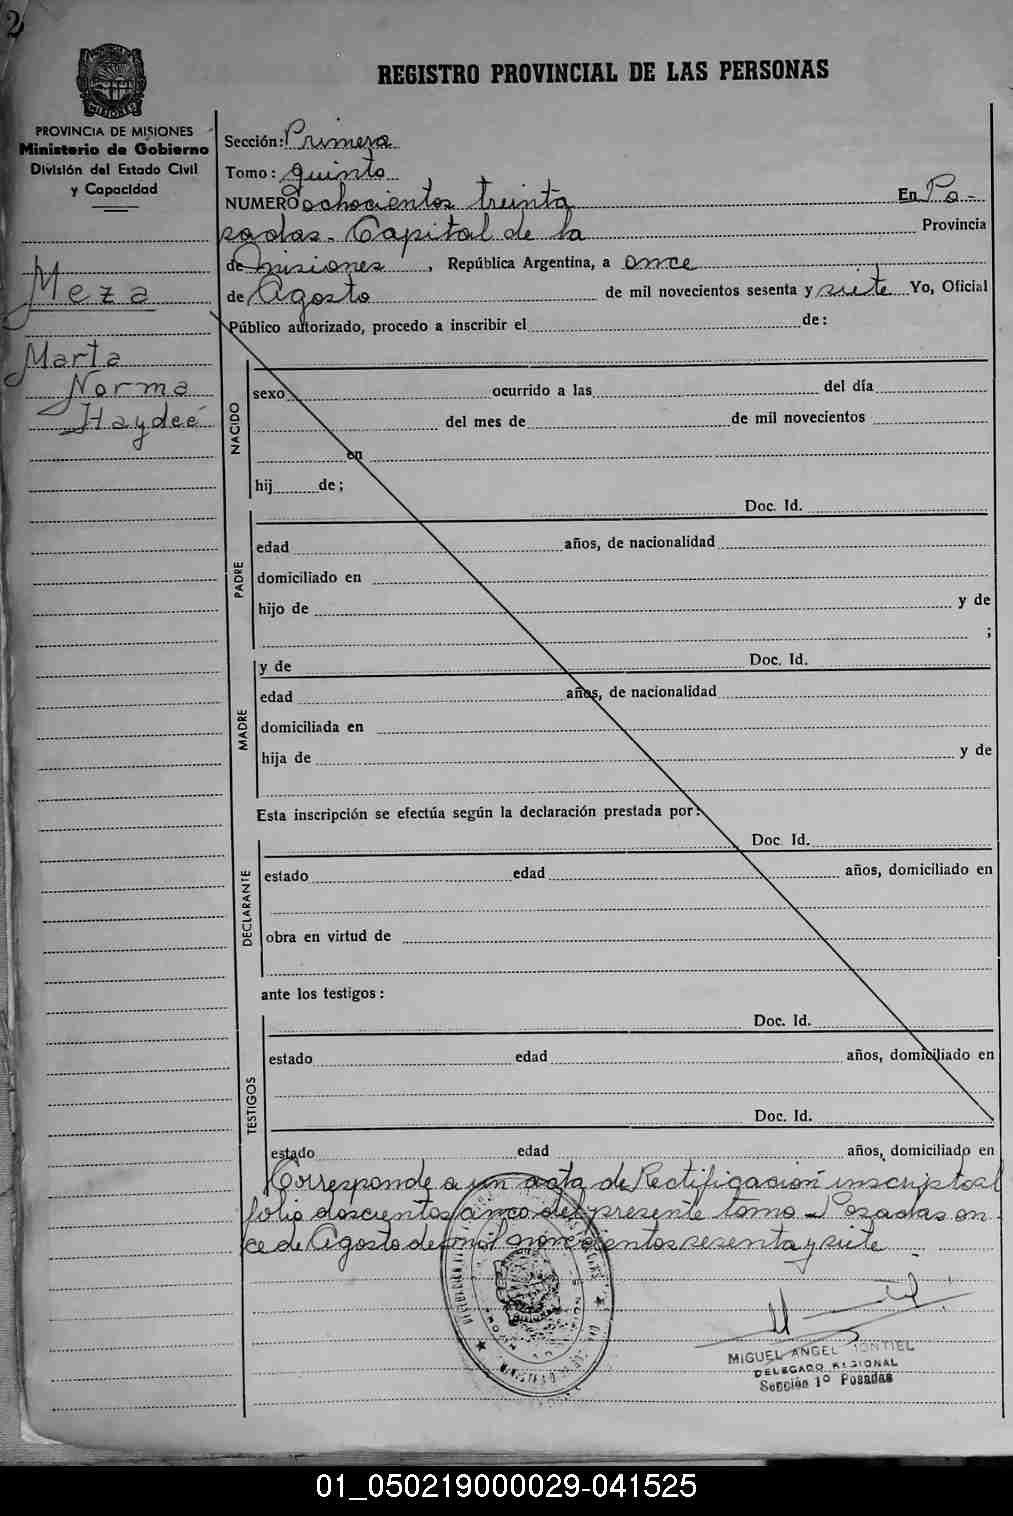 2
REGISTRO PROVINCIAL DE LAS PERSONAS
PROVINCIA DE MISIONES
Ministerio de Gobierno
División del Estado Civil
y Capacidad
Meza
Marta
Norma
Haydeé
Sección: Primera
Tomo: quinto
NUMERO ochocientos treinta En Po-
sadas - Capital de la Provincia
de Misiones, República Argentina, a once
de Agosto de mil novecientos sesenta y siete Yo, Oficial
Público autorizado, procedo a inscribir el de:
NACIDO
sexo ocurrido a las del día
del mes de de mil novecientos
en
hij de;
Doc. Id.
PADRE
edad años, de nacionalidad
domiciliado en
hijo de y de
;
y de Doc. Id.
MADRE
edad años, de nacionalidad
domiciliada en
hija de y de
Esta inscripción se efectúa según la declaración prestada por:
Doc. Id.
DECLARANTE
estado edad años, domiciliado en
obra en virtud de
ante los testigos:
Doc. Id.
TESTIGOS
estado edad años, domiciliado en
Doc. Id.
estado edad años, domiciliado en
Corresponde a un acta de Rectificación inscripto al
folio doscientos cinco del presente tomo - Posadas on-
ce de Agosto de mil novecientos sesenta y siete
MIGUEL ANGEL
DELEGADO REGIONAL
Sección 1º Posadas
01_050219000029-041525